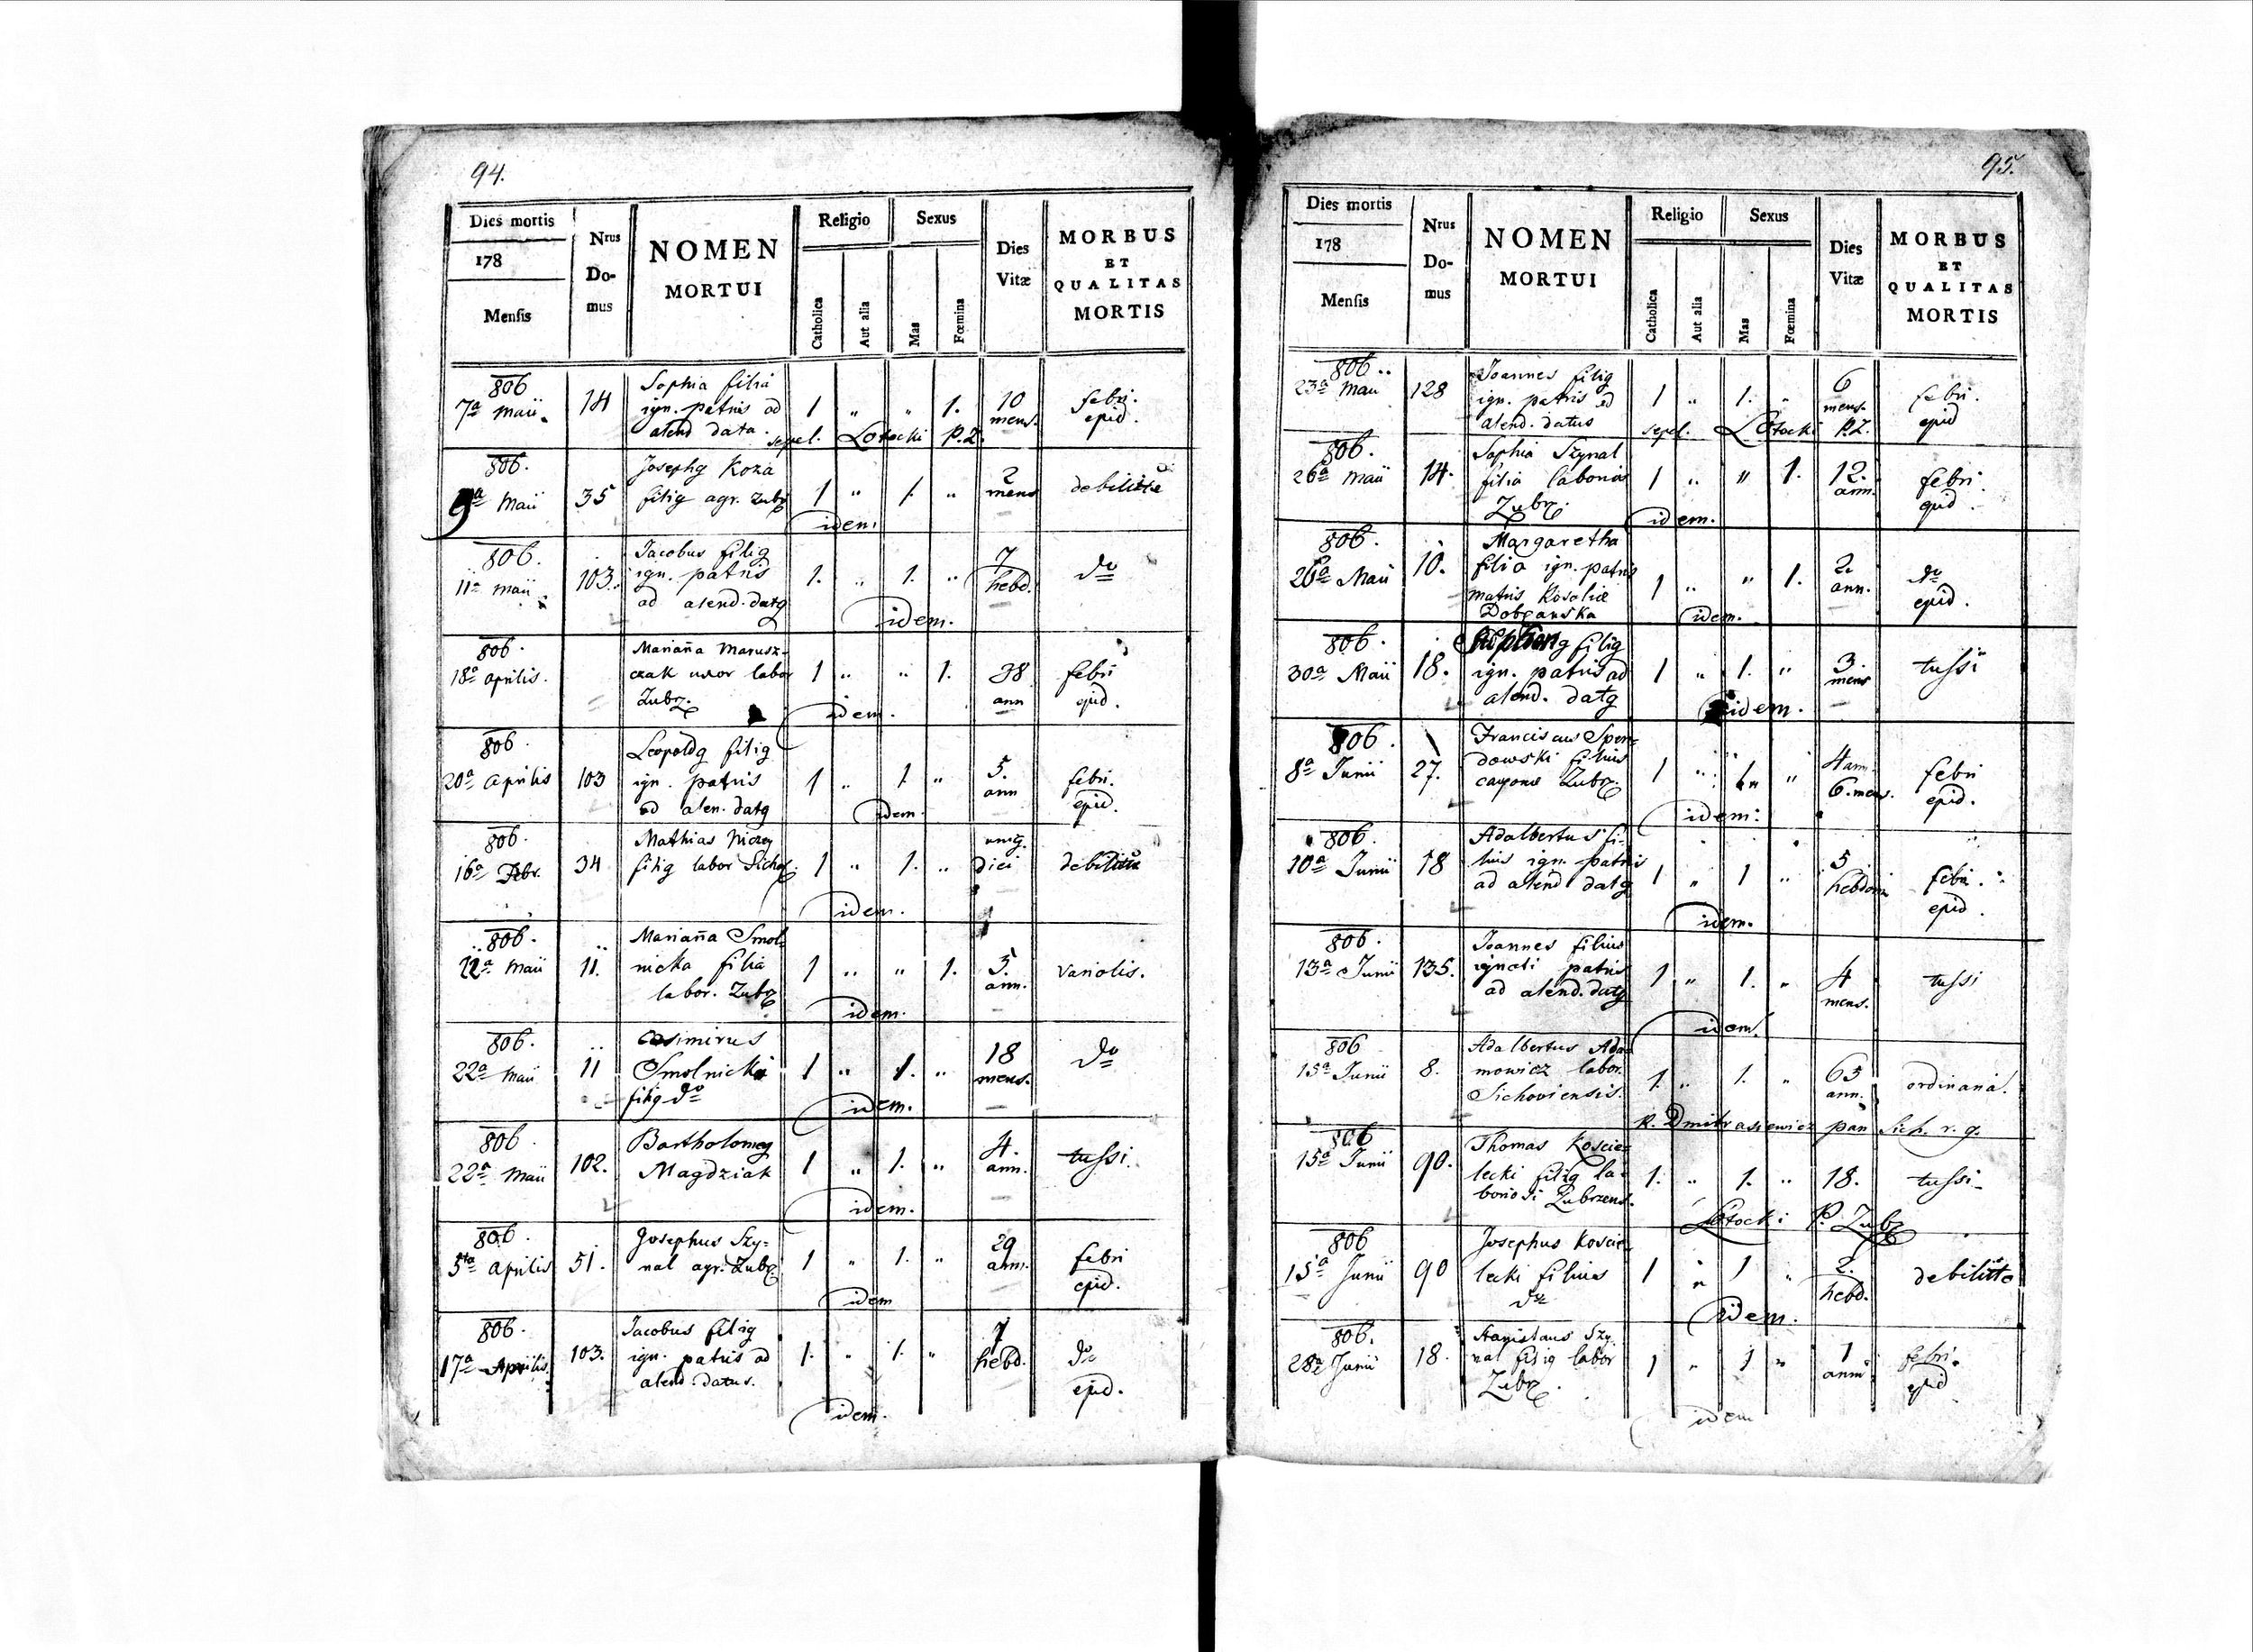 94.
Dies mortis
178
Mensis
Nrus Do-mus
NOMEN MORTUI
Religio
Catholica
Aut alia
Sexus
Mas
Fœmina
Dies Vitæ
MORBUS ET QUALITAS MORTIS
806
7a Maii. 14 Sophia filia ign. patris ad alend data. 1 " " 1. 10 mens. febri. epid.
sepel. Lotocki P.Z.
806.
9a Maii 35 Josephg Koza filig agr. Zubrz 1 " 1. " 2 mens debilitte
idem.
806.
11a Maii 103. Jacobus filig ign. patris ad alend. datg 1. " 1. " 7 hebd. do
idem.
806.
18a aprilis. Marianna Marusz-czak uxor labor Zubrz. 1 " " 1. 38 ann febri epid.
idem.
806.
20a Aprilis 103 Leopoldg filig ign. patris ad alen. datg 1 " 1 " 5. ann febri. epid.
idem.
806.
16a Febr. 34 Mathias filig labor Sichov. 1 " 1. " unig. diei
idem.
806.
22a Maii 11. Marianna Smol-nicka filia labor. Zubrz 1 " " 1. 5. ann. variolis.
idem.
806.
22a Maii 11 Casimirus Smolnicki filig do 1 " 1. " 18 mens. do
idem.
806.
22a Maii 102. Bartholomeg Magdziak 1 " 1. " 4. ann. tussi.
idem.
806.
5ta Aprilis 51. Josephus Szy-nal agr. Zubrz. 1 " 1. " 29 ann. febri epid.
idem
806.
17a Aprilis. 103. Jacobus filig ign. patris ad alend. datus. 1. " 1. " 7 hebd. do epid.
idem.
95.
Dies mortis
178
Mensis
Nrus Do-mus
NOMEN MORTUI
Religio
Catholica
Aut alia
Sexus
Mas
Fœmina
Dies Vitæ
MORBUS ET QUALITAS MORTIS
806..
23a Maii 128 Joannes filig ign. patris ad alend. datus 1 " 1. " 6 mens. febri. epid
sepel. Lotocki P.Z.
806.
26a Maii 14. Sophia Szynal filia laborios Zubrz. 1 " " 1. 12. ann. febri epid.
idem.
806.
26a Maii 10. Margaretha filia ign. patris matris Rosaliæ Dobzanska 1 " " 1. 2. ann. do epid.
idem.
806.
30a Maii 18. filig ign. patris ad alend. datg 1 " 1. " 3. mens tussi
idem.
806.
8a Junii 27. Franciscus Spen-dowski filius Zubrz. 1 " 1 " 4 ann. 6. mens. febri epid.
idem.
806.
10a Junii 18 Adalbertus fi-lius ign. patris ad alend datg 1 " 1 " 5 hebdom febri. epid.
idem.
806.
13a Junii 135. Joannes filius ignoti patris ad alend. datg 1 " 1. " 4 mens. tussi
idem.
806
15a Junii 8. Adalbertus Ada-mowicz labor. Sichoviensis. 1. " 1. " 65 ann. ordinaria.
R. Dmitrasiewicz par Sich. r. g.
806
15a Junii 90. Thomas Koscie-lecki filig la-boriosi Zubrzens. 1. " 1. " 18. tussi
Lotocki P. Zubrz
806
15a Junii 90 Josephus Koscie-lecki filius do 1 " 1 " 2. hebd. debilitte
idem.
806.
28a Junii 18. Stanislaus Szy-nal filig labor Zubrz. 1 " 1 " 1 anni febri. epid
idem